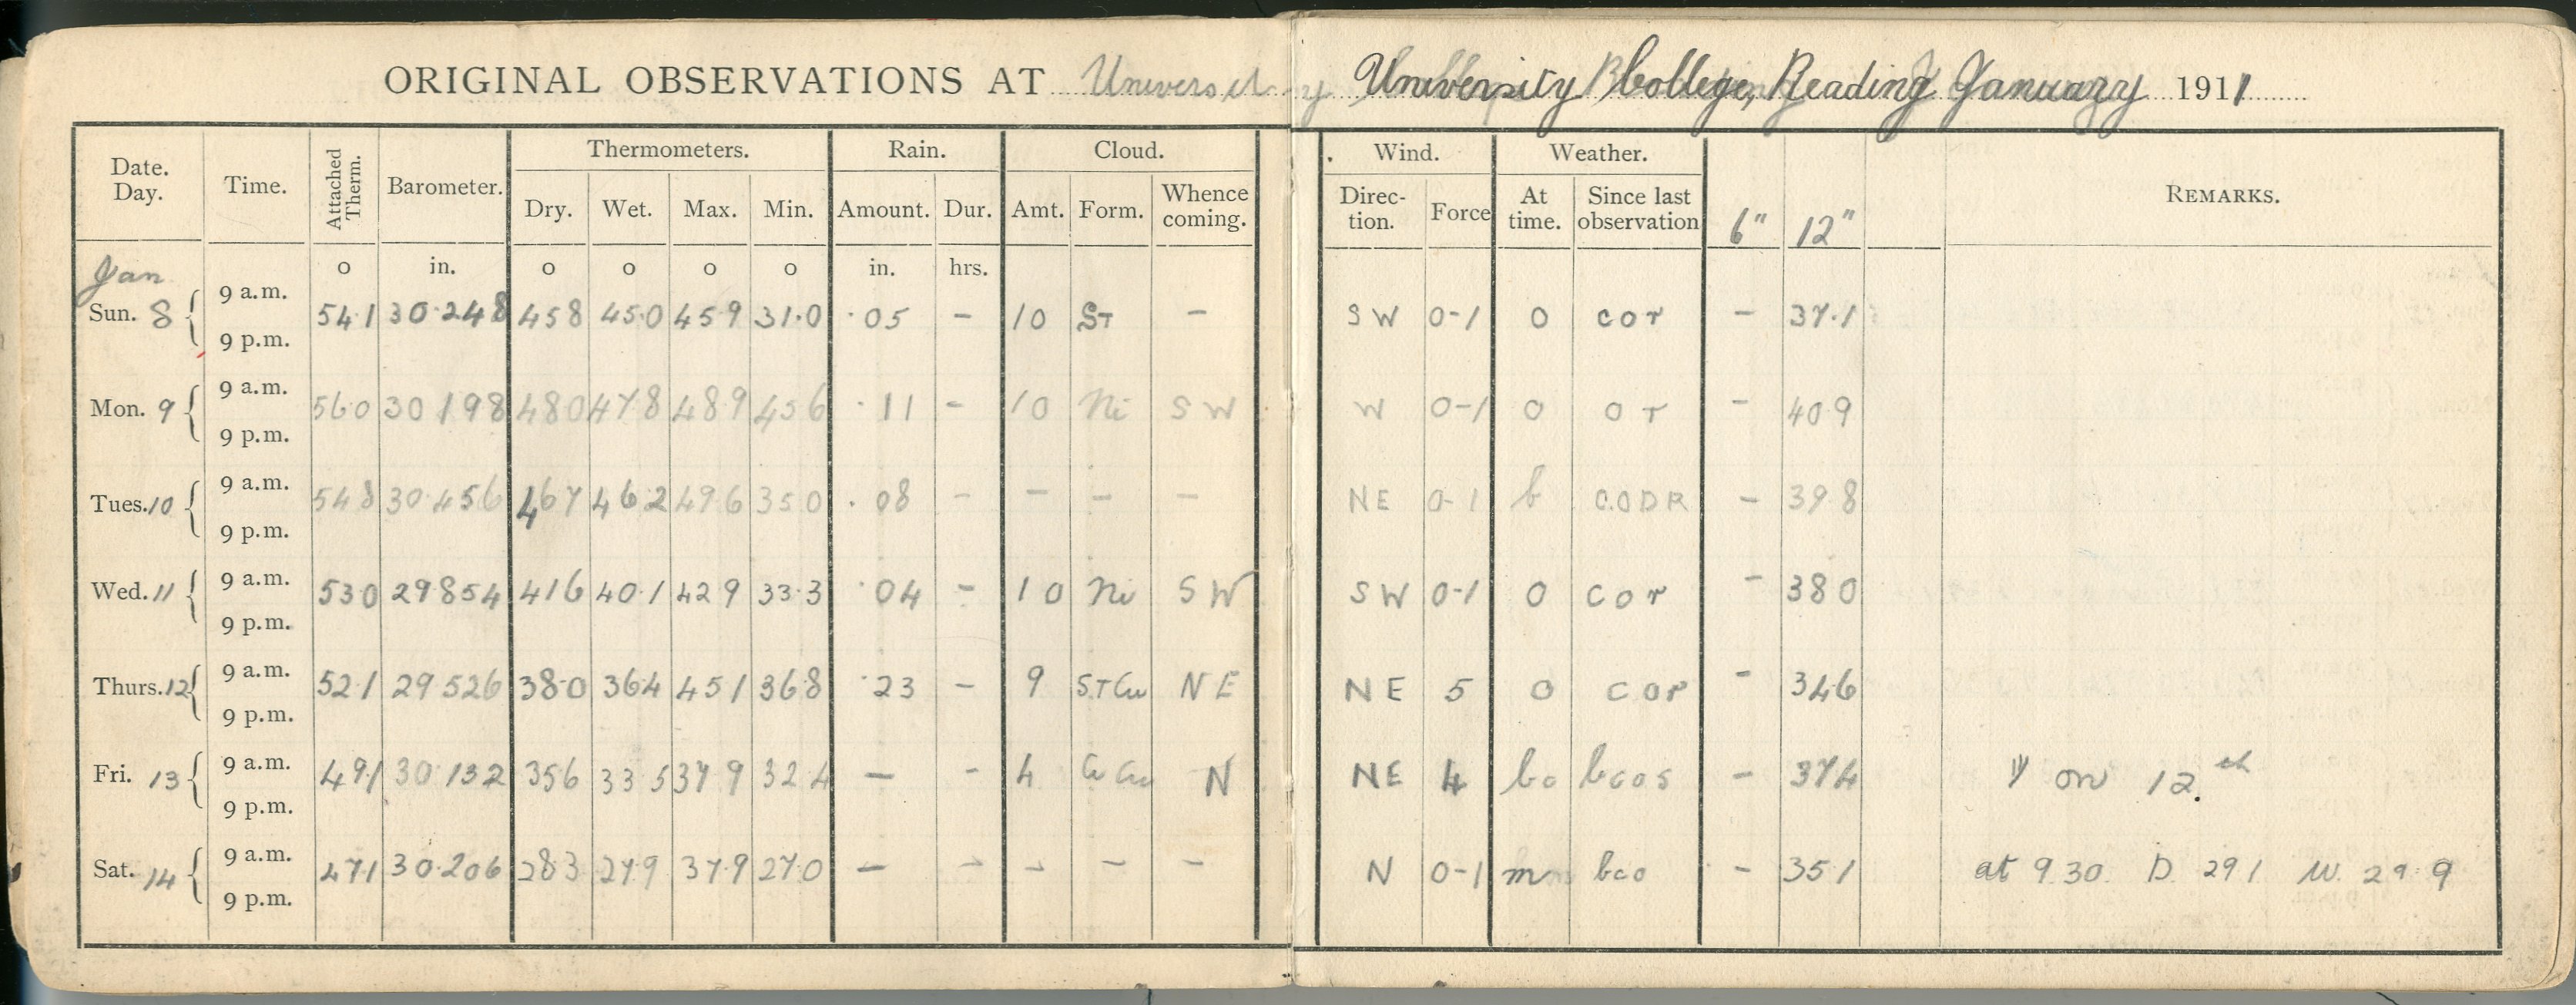 ORIGINAL OBSERVATIONS AT University College, Reading January 1911
Date. Day. Time. Attached Therm. Barometer. Thermometers. Rain. Cloud. Wind. Weather. 6" 12" REMARKS.
Dry. Wet. Max. Min. Amount. Dur. Amt. Form. Whence coming. Direc-tion. Force At time. Since last observation
Jan o in. o o o o in. hrs.
Sun. 8 { 9 a.m. 54.1 30.248 45.8 45.0 45.9 31.0 .05 – 10 ST – SW 0-1 o cor – 37.1
9 p.m.
Mon. 9 { 9 a.m. 560 30 198 480 478 489 456 .11 – 10 Ni SW W 0-1 o or – 409
9 p.m.
Tues. 10 { 9 a.m. 548 30.456 467 462 496 350 .08 – – – – NE 0-1 b CODR – 398
9 p.m.
Wed. 11 { 9 a.m. 530 29854 416 40.1 429 33.3 .04 – 10 Ni SW SW 0-1 o cor – 380
9 p.m.
Thurs. 12 { 9 a.m. 521 29526 38.0 364 451 368 .23 – 9 S.T Cu NE NE 5 o cor – 346
9 p.m.
Fri. 13 { 9 a.m. 491 30.132 356 335 379 324 – – 4 Ci Cu N NE 4 bc bcos – 374 on 12th.
9 p.m.
Sat. 14 { 9 a.m. 471 30.206 283 279 379 270 – – – – – N 0-1 m bco – 351 at 9.30. D. 291 W. 29.9
9 p.m.